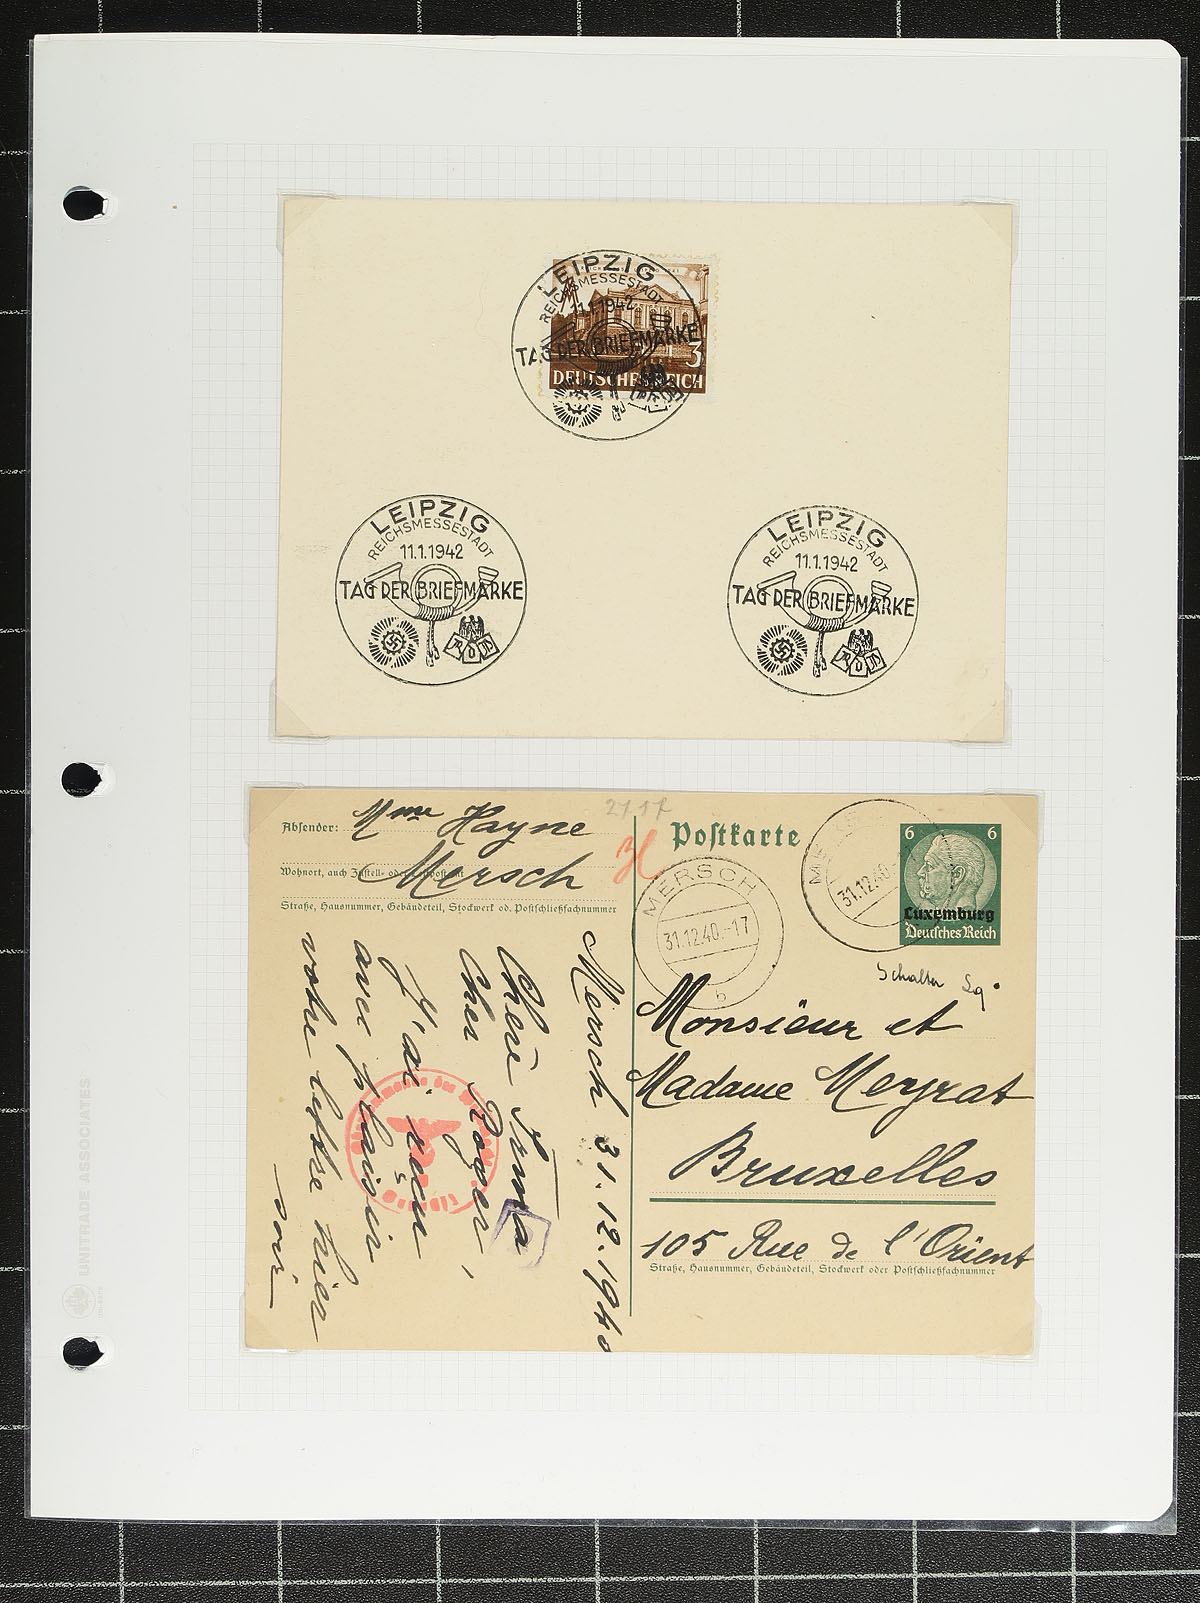 LEIPZIG
REICHSMESSESTADT
11.1.1942
TAG DER BRIEFMARKE
3
DEUTSCHES REICH
LEIPZIG
REICHSMESSESTADT
11.1.1942
TAG DER BRIEFMARKE
LEIPZIG
REICHSMESSESTADT
11.1.1942
TAG DER BRIEFMARKE
Absender: Mme Hayne
Mersch
Wohnort, auch Zustell- oder
Straße, Hausnummer, Gebäudeteil, Stockwerk od. Postschließfachnummer
Postkarte
MERSCH
31.12.40.-17
b
31.12.40.-
6 6
Luxemburg
Deutsches Reich
Schalter
Monsieur et
Madame Meyrat
Bruxelles
105 Rue de l'Orient
Straße, Hausnummer, Gebäudeteil, Stockwerk oder Postschließfachnummer
Mersch 31.12.1940
Chère Irma
Cher Roger,
J'ai reçu
avec plaisir
votre lettre hier
soir
UNITRADE ASSOCIATES